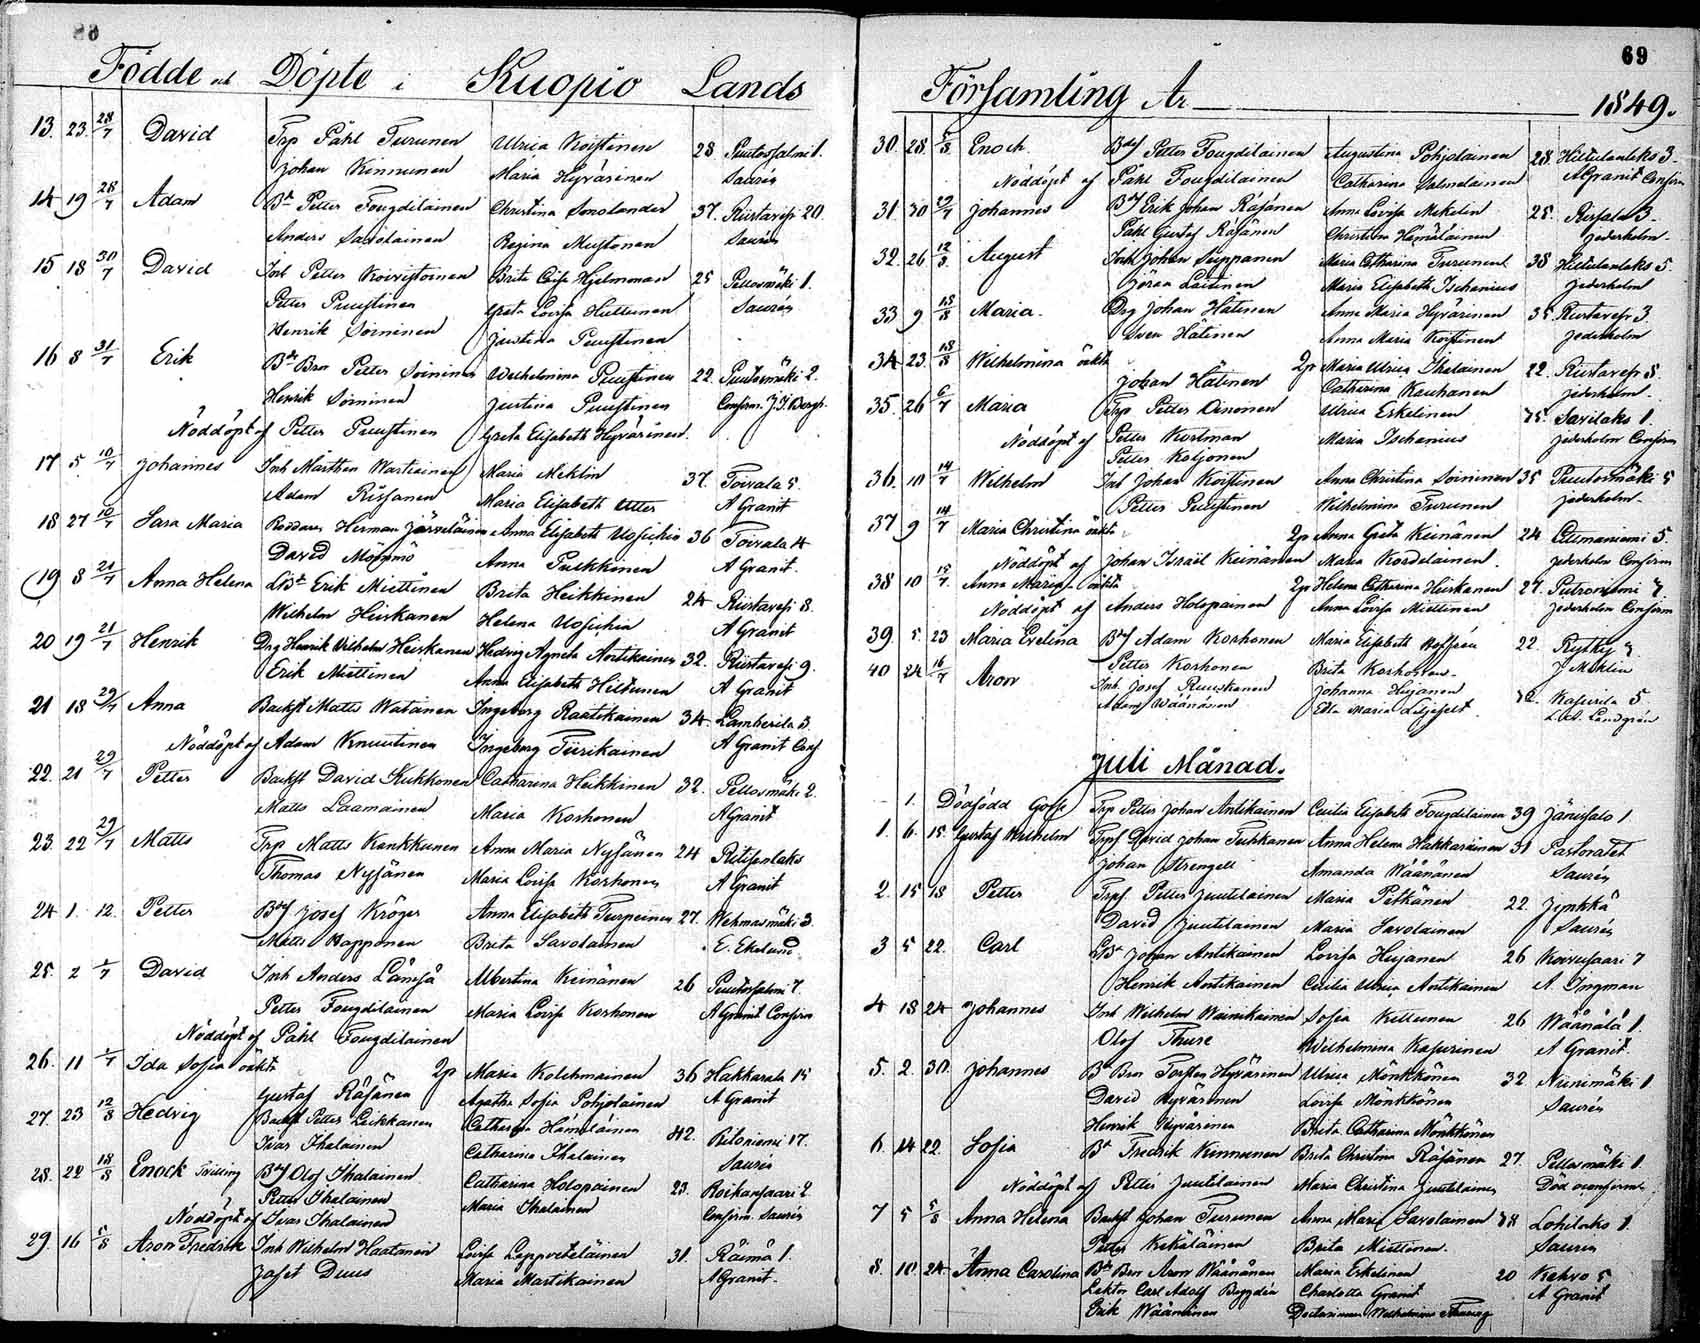 Födde och Döpte i Kuopio Lands
13. 23. 28/7 David Trp Påhl Turunen Ulrica Koistinen 28 Puutossalmi 1.
Johan Kinnunen Maria Hyvärinen Saurén
14 19 28/7 Adam Bd Petter Fougdilainen Christina Smolander 37. Riistavesi 20.
Anders Savolainen Regina Mustonen Saurén
15 18 30/7 David Inh Petter Koivistoinen Brita Caisa Hjelmman 25 Pellosmäki 1.
Petter Puustinen Greta Lovisa Huttunen Saurén
Henrik Soininen Justina Puustinen
16 8 31/7 Erik Bds Bror Petter Soininen Wilhelmina Puustinen 22. Puutosmäki 2.
Henrik Soininen Justina Puustinen Confirm. J.J. Bergh.
Nöddöpt af Petter Puustinen Greta Elisabeth Hyvärinen
17 5 10/7 Johannes Inh Mårthen Wartiainen Maria Meklin 37. Toivala 5.
Adam Rissanen Maria Elisabeth Utter A Granit
18 27 10/7 Sara Maria Herman Järveläinen Anna Elisabeth Ursuhin 36 Toivala 4
David Mömmö Anna Pukkinen A Granit.
19 8 21/7 Anna Helena Erik Miettinen Brita Heikkinen 24 Riistavesi 8.
Wilhelm Hiiskanen Helena A Granit
20 19 21/7 Henrik Drg Henrik Wilhelm Heiskanen Hedvig Agneta Antikainen 32. Riistavesi 9.
Erik Miettinen Anna Elisabeth Hiltunen A Granit
21 18 29/7 Anna Backst Matts Watainen Ingeborg Raatikainen 34. Lamberila 3
Nöddöpt af Adam Knuutinen Ingeborg Tiirikainen A Granit Conf
22. 21 29/7 Petter Backst David Kukkonen Catharina Heikkinen 32. Pellosmäki 2.
Matts Laamainen Maria Korhonen A Granit
23. 22 29/7 Matts Trp Matts Kankkunen Anna Maria Nysänen 24 Ritisenlaks
Thomas Nysänen Maria Lovisa Korhonen A Granit
24 1. 12. Petter Bdf Josef Kröger Anna Elisabeth Turpeinen 27. Wehmasmäki 3.
Matts Happonen Brita Savolainen E. Ekelund
25. 2 1/7 David Inh Anders Länsjå Albertina Keinänen 26 Puutossalmi 7.
Petter Fougdilainen Maria Lovisa Korhonen A Granit Confirm
Nöddöpt af Påhl Fougdilainen
26. 11 1/7 Ida Sofia oäkta 2p Maria Kolehmainen 36 Hakkarala 15
Gustaf Räsänen Agatha Sofia Pohjolainen A Granit
27. 23 12/8 Hedvig Backst Petter Leikkanen Catharina Hämäläinen 42. Ritoniemi 17.
Ivar Ihalainen Catharina Ihalainen Saurén
28. 22 18/8 Enock Trilling Bdf Olof Ihalainen Catharina Holopainen 23. Roikansaari 2.
Petter Ihalainen Maria Ihalainen Confirm. Saurén
Nöddöpt af Ivar Ihalainen
29. 16 5/8 Aron Fredrik Inh Wilhelm Haatanen Lovisa Leppveteläinen 31. Räimä 1.
Josef Duus Maria Martikainen A Granit.
69
Församling År 1849.
30. 28. 5/8 Enoch. Bdf Petter Fougdilainen Augustina Pohjolainen 28. Hiltulanlaks 3.
Nöddöpt af Påhl Fougdilainen Catharina Valmelainen A Granit Confirm
31. 30 29/7 Johannes Bdf Erik Johan Räsänen Anna Lovisa Mekelin 25. 3.
Påhl Gustaf Räsänen Christina Hämäläinen Jederholm.
32. 26 12/8 August Inh Johan Seppänen Maria Catharina Turunen 38 Hiltulanlaks 5.
Jöran Laitinen Maria Elisabeth Ischanius Jederholm
33 9 18/8 Maria. Drg Johan Hätinen Anna Maria Hyvärinen 35. Riistavesi 3.
Sven Hätinen Anna Maria Koistinen Jederholm
34 23. 18/8 Wilhelmina oäkta 2p Maria Ulrica Ihalainen 22. Riistavesi 8.
Johan Hätinen Catharina Kauhanen Jederholm.
35. 26 6/7 Maria Trp Petter Oinonen Ulrica Eskelinen 25. Savilaks 1.
Nöddöpt af Petter Kortman Maria Ischanius Jederholm Confirm
Petter Koljonen
36. 10 14/7 Wilhelm Inh Johan Koistinen Anna Christina Soininen 35 Puutosmäki 5
Petter Puustinen Wilhelmina Turunen Jederholm.
37 9 14/7 Maria Christina oäkta 2p Anna Greta Keinänen 24 5.
Nöddöpt af Johan Israel Keinänen Maria Kordelainen. Jederholm Confirm
38 10 15/7 Anna Maria oäkta 2p Helena Catharina Heiskanen 27. Putroniemi 7.
Nöddöpt af Anders Holopainen Anna Lovisa Miettinen Jederholm Confirm
39. 5. 23 Maria Evelina Bdf Adam Korhonen Maria Elisabeth Holfrén 22. Rytky 7.
Petter Korhonen Brita Korhonen J Meklin
40 24 16/7 Aron Inh. Josef Ruuskanen Johanna Hujanen Kasurila 5
Adam Väänänen Edla Maria Liljefelt. Landgrén
Juli Månad.
1. Dödfödd Gosse Trp Petter Johan Antikainen Cecilia Elisabeth Fougdilainen 39 Jänissalo 1
1. 6. 15. Gustaf Wilhelm Trpf David Johan Tuhkanen Anna Helena Hakkarainen 31 Pastoratet
Johan Strengell Amanda Wäänänen Saurén
2. 15 18 Petter Trpf. Petter Juutilainen Maria Pitkänen 22 Jynkkä
David Juutilainen Maria Savolainen Saurén
3 5 22. Carl Johan Antikainen Lovisa Hujanen 26 Koivusaari 7
Henrik Antikainen Cecilia Ulrica Antikainen A. Ingman
4 18 24 Johannes Inh Wilhelm Wainikainen Sofia Kettunen 26 Wäänälä 1.
Olof Thure Wilhelmina Kasurinen A Granit.
5. 2. 30. Johannes Bds Bror Torsten Hyvärinen Ulrica Mönkkönen 32 Niinimäki 1
David Hyvärinen Lovisa Mönkkönen Saurén
Henrik Hyvärinen Brita Catharina Mönkkönen
6. 14 22. Sofia Bd Fredrik Kinnunen Brita Christina Räsänen 27. Pellosmäki 1.
Nöddöpt af Petter Juutilainen Maria Christina Juutilainen Död oconfirm.
7 5 5/8 Anna Helena Backst Johan Turunen Anna Maria Savolainen 38 Lohilaks 1.
Petter Kekäläinen Brita Miettinen. Saurén
8. 10. 24. Anna Carolina Bds Bror Aron Wäänänen Maria Eskelinen 20 Kehvo 5
Lektor Carl Adolf Boggdén Charlotta Granit A Granit
Erik Wäänänen Doctorinnan Wilhelmina